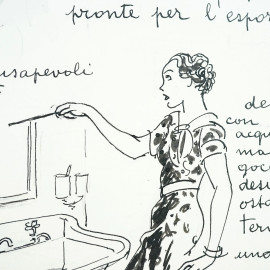 pronte per l'espor
usapevoli
de
con
acqu
ma
goc
dess
osta
tern
una